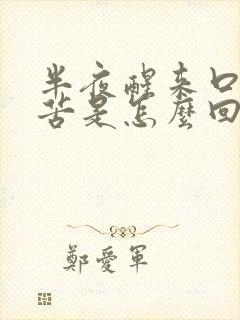 半夜醒来口
苦是怎麼回
鄭愛軍